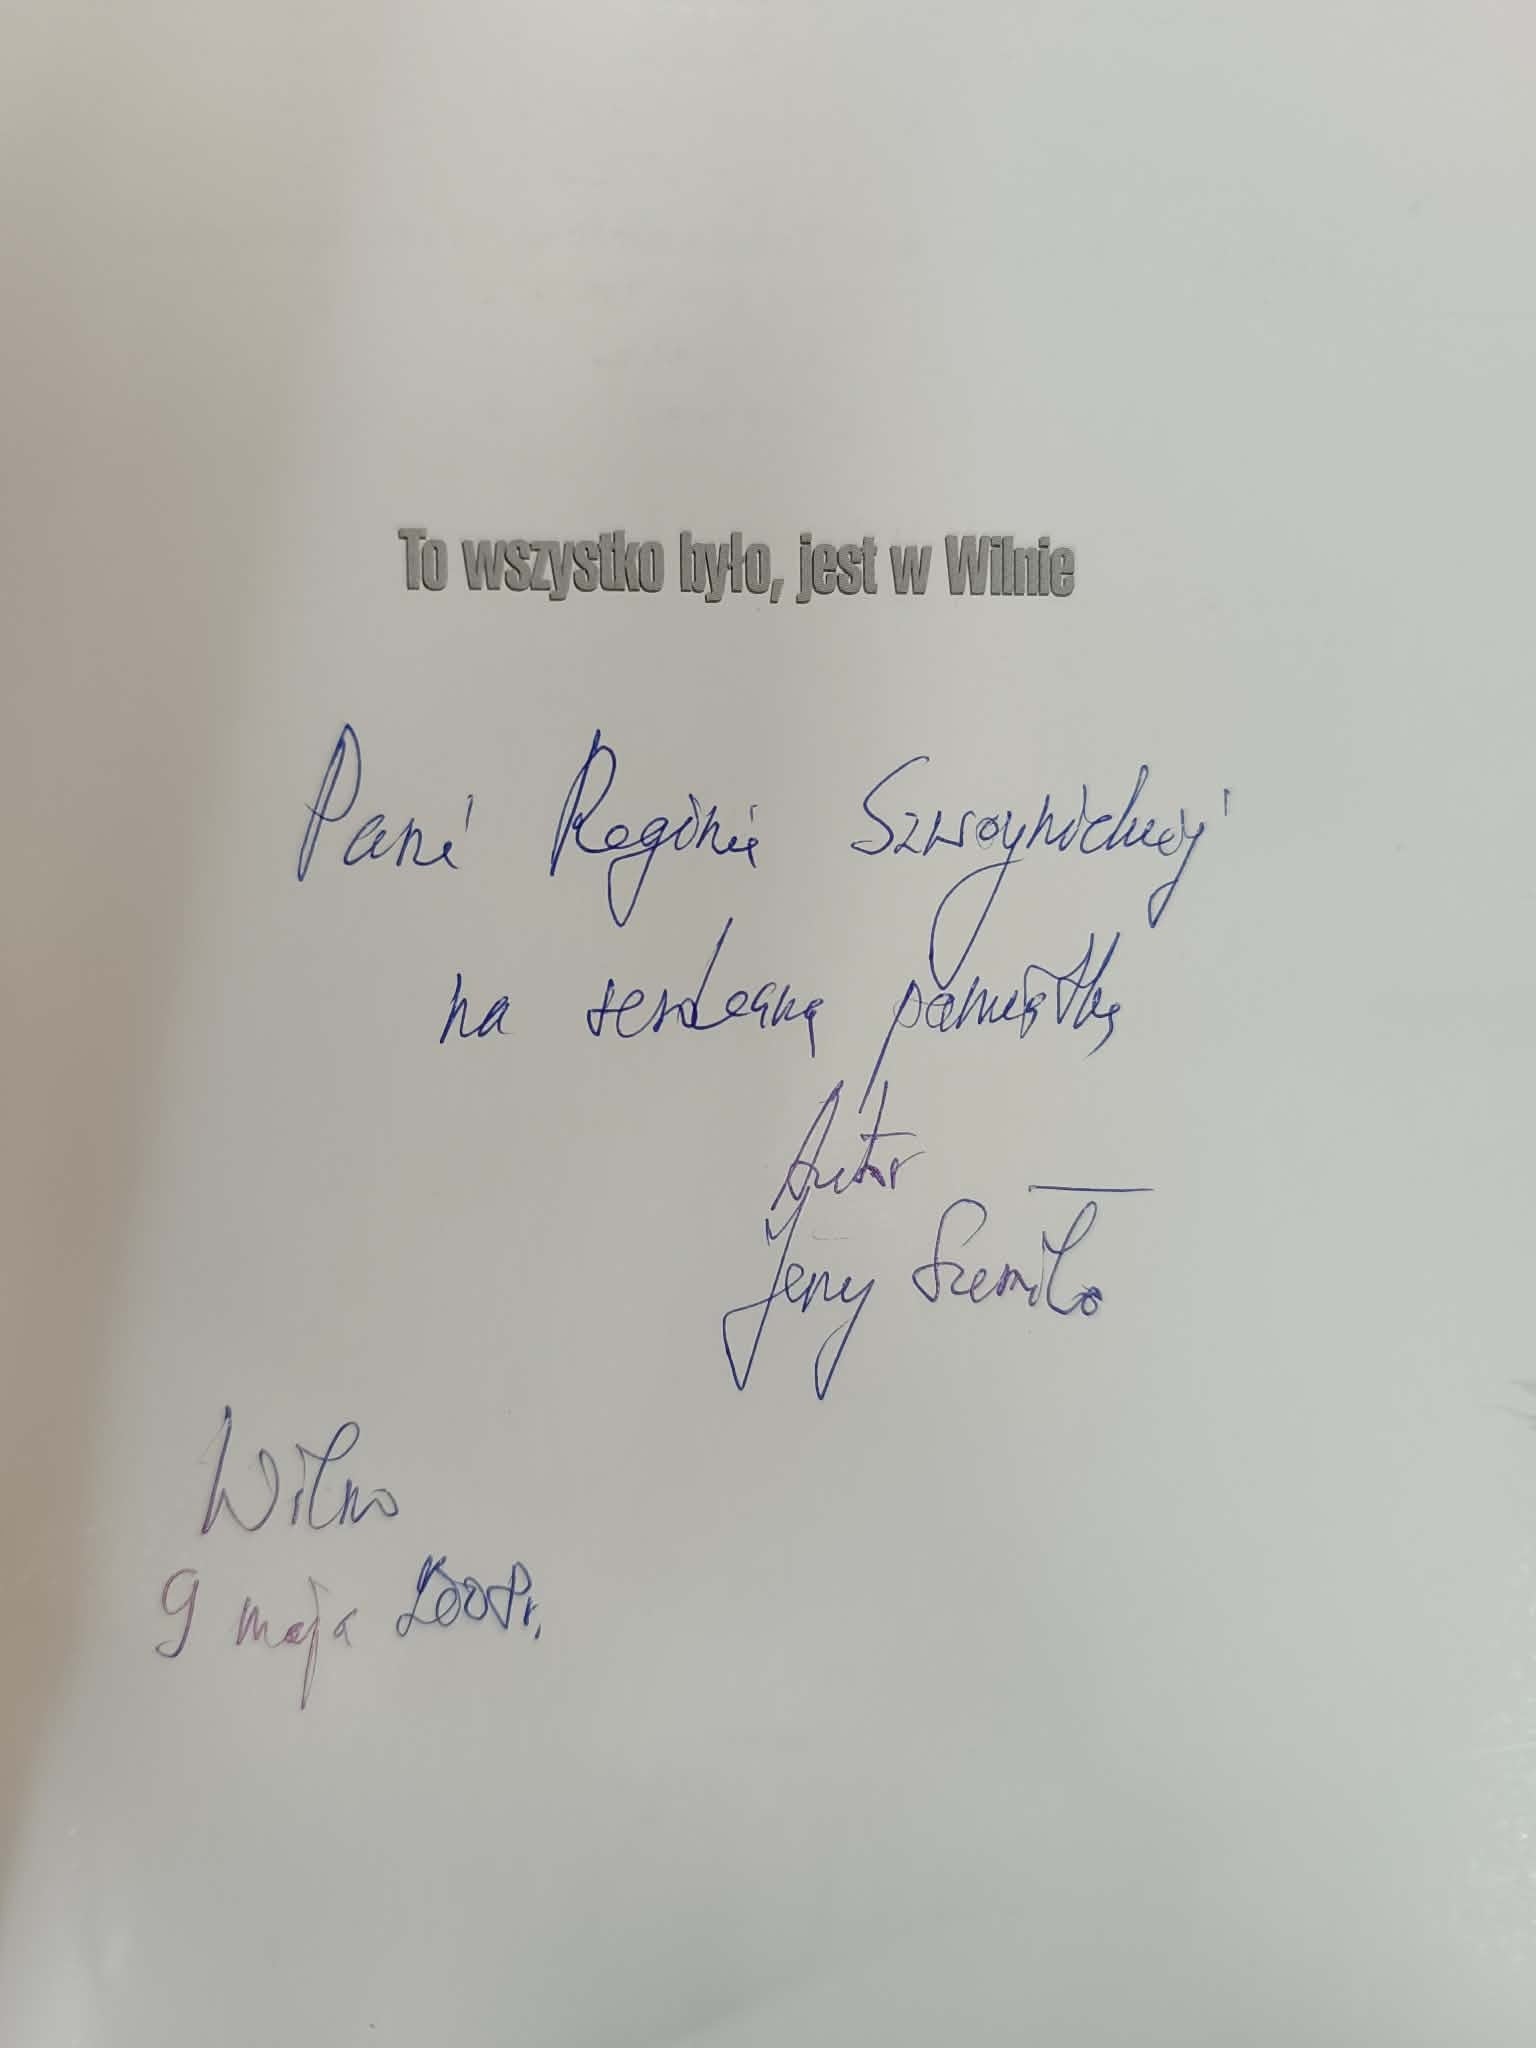 To wszystko było, jest w Wilnie
Pani Reginie Szwoynickiej
na serdeczną pamiątkę
Autor
Jerzy Surwiło
Wilno
9 maja 2008 r.